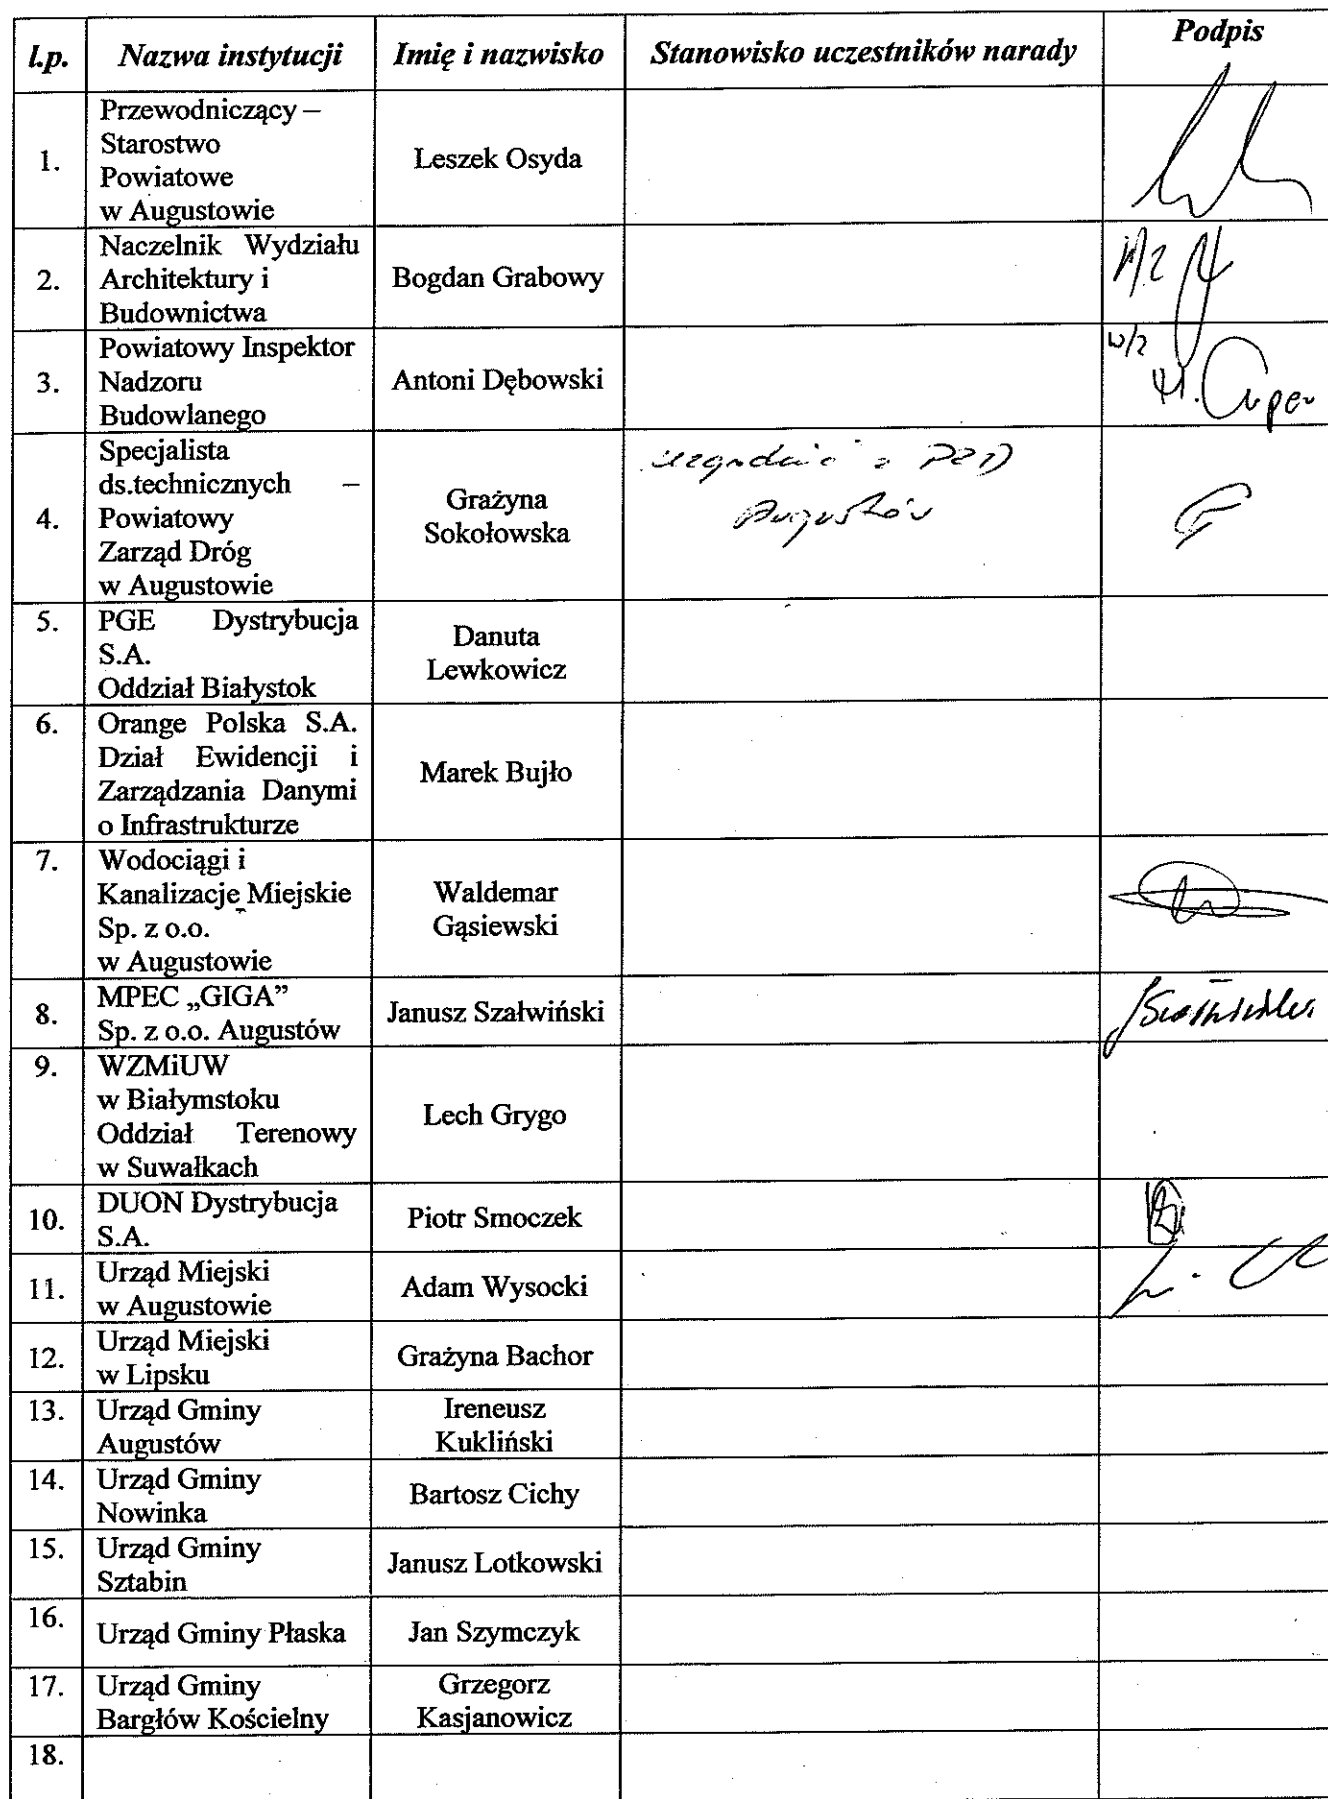 l.p. Nazwa instytucji Imię i nazwisko Stanowisko uczestników narady Podpis
1.
Przewodniczący –
Starostwo
Powiatowe
w Augustowie
Leszek Osyda
2.
Naczelnik Wydziału
Architektury i
Budownictwa
Bogdan Grabowy
3.
Powiatowy Inspektor
Nadzoru
Budowlanego
Antoni Dębowski
w/z
4.
Specjalista
ds.technicznych –
Powiatowy
Zarząd Dróg
w Augustowie
Grażyna
Sokołowska
uzgodnić z PZD
Augustów
5.
PGE Dystrybucja
S.A.
Oddział Białystok
Danuta
Lewkowicz
6.
Orange Polska S.A.
Dział Ewidencji i
Zarządzania Danymi
o Infrastrukturze
Marek Bujło
7.
Wodociągi i
Kanalizacje Miejskie
Sp. z o.o.
w Augustowie
Waldemar
Gąsiewski
8.
MPEC „GIGA”
Sp. z o.o. Augustów
Janusz Szałwiński
9.
WZMiUW
w Białymstoku
Oddział Terenowy
w Suwałkach
Lech Grygo
10.
DUON Dystrybucja
S.A.
Piotr Smoczek
11.
Urząd Miejski
w Augustowie
Adam Wysocki
12.
Urząd Miejski
w Lipsku
Grażyna Bachor
13.
Urząd Gminy
Augustów
Ireneusz
Kukliński
14.
Urząd Gminy
Nowinka
Bartosz Cichy
15.
Urząd Gminy
Sztabin
Janusz Lotkowski
16.
Urząd Gminy Płaska
Jan Szymczyk
17.
Urząd Gminy
Bargłów Kościelny
Grzegorz
Kasjanowicz
18.